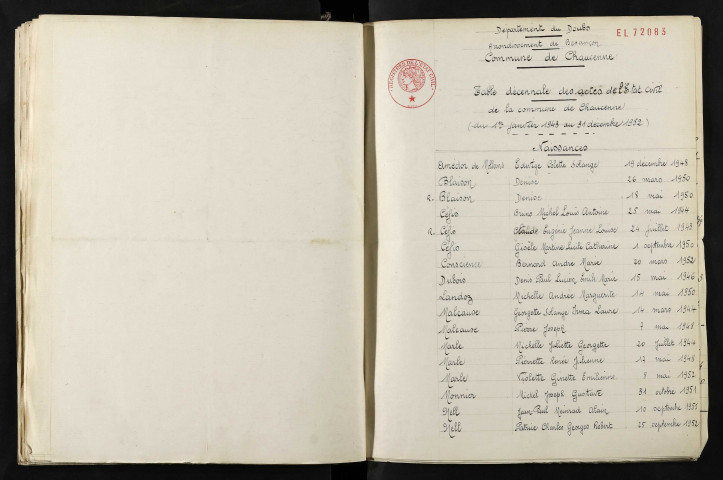 Département du Doubs
EL 72083
Arrondissement de Besançon
Commune de Chaucenne
REGISTRES DE L'ETAT CIVIL
Table décennale des actes de l'Etat Civil
de la commune de Chaucenne
(du 1er janvier 1943 au 31 décembre 1952)
Naissances
de Edwige Colette Solange 19 décembre 1948
Blaison Denise 26 mars 1950
2. Blaison Denise 18 mai 1950
Céfis Bruno Michel Louis Antoine 25 mai 1944
2. Céfis Claude Eugénie Jeanne Louise 24 juillet 1949
Céfis Gisèle Martine Lucile Catherine 1 septembre 1950
Conscience Bernard André Marie 20 mars 1952
Dubois Denis Paul Lucien Emile Marie 15 mai 1946
Landoz Michelle Andrée Marguerite 14 mai 1950
Malcause Georgette Solange Irma Laure 14 mars 1944
Malcause Pierre Joseph 7 mai 1948
Marle Michelle Juliette Georgette 20 juillet 1944
Marle Pierrette Renée Julienne 12 mai 1948
Marle Violette Ginette Emilienne 8 mai 1952
Monnier Michel Joseph Gustave 31 octobre 1951
Mell Jean Paul Meinrad Alain 10 septembre 1952
Mell Patrice Charles Georges Robert 25 septembre 1952